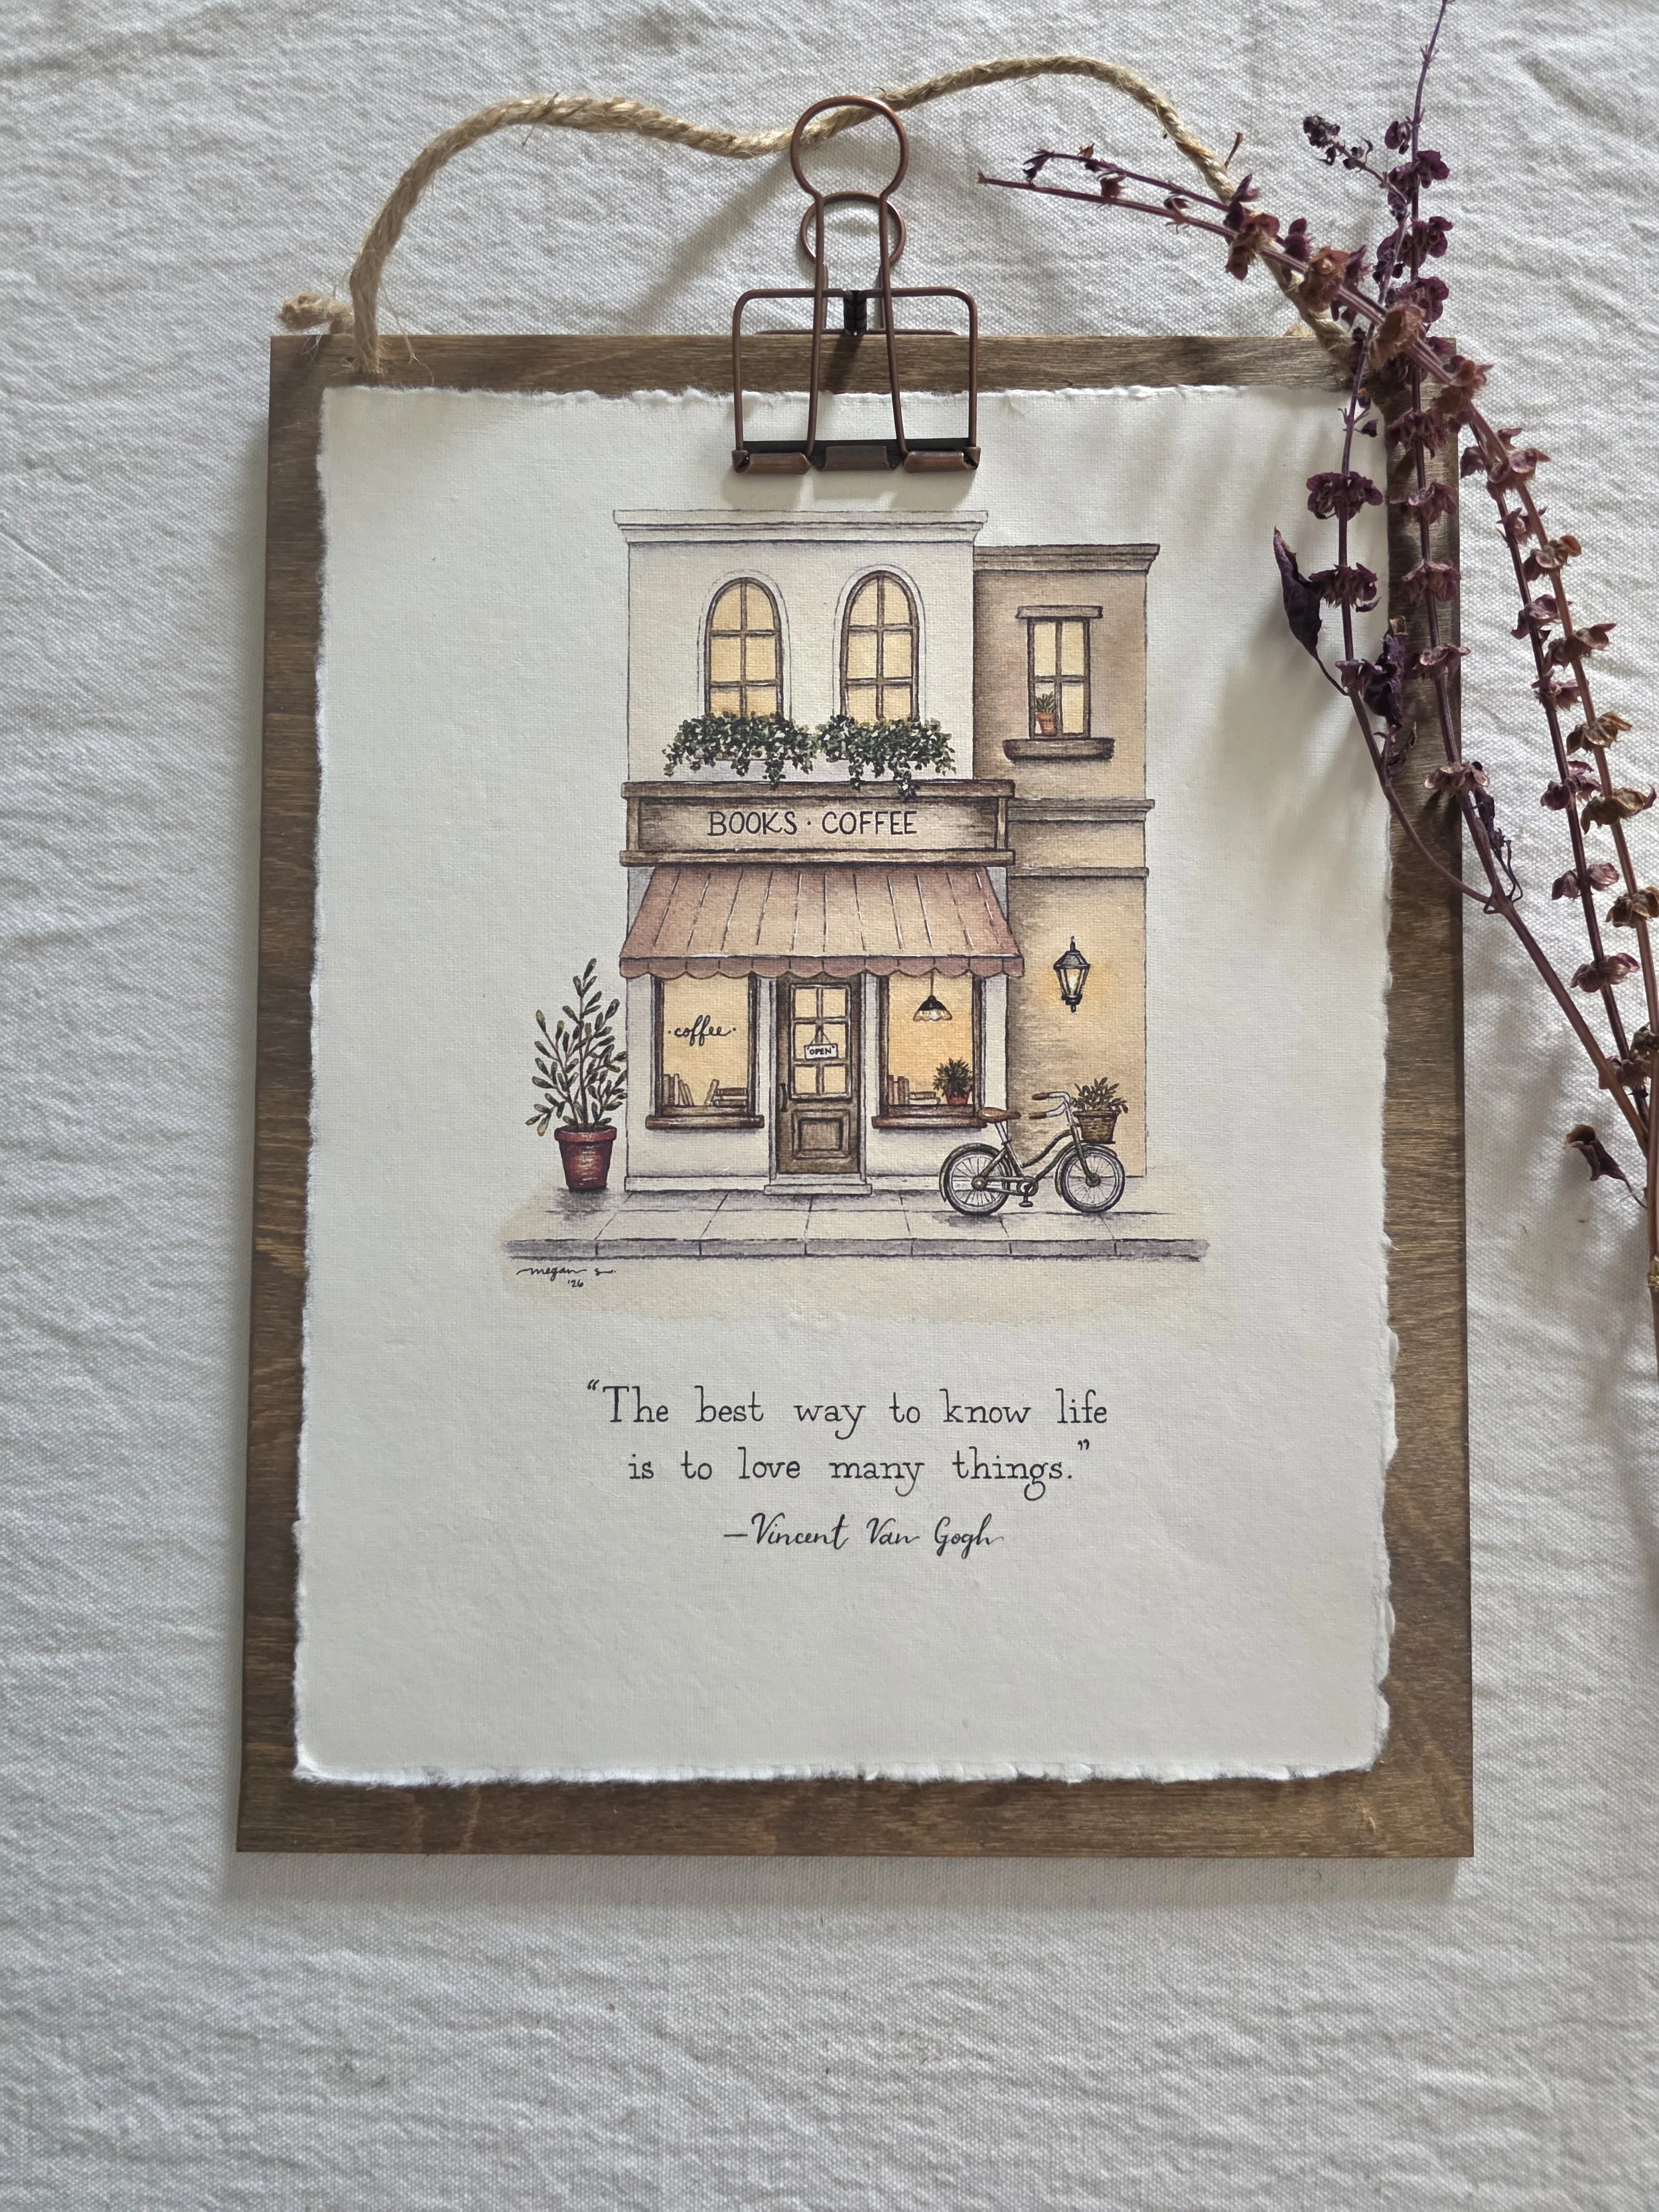 BOOKS · COFFEE
·coffee·
"OPEN"
megan s
'26
“The best way to know life
is to love many things.”
—Vincent Van Gogh